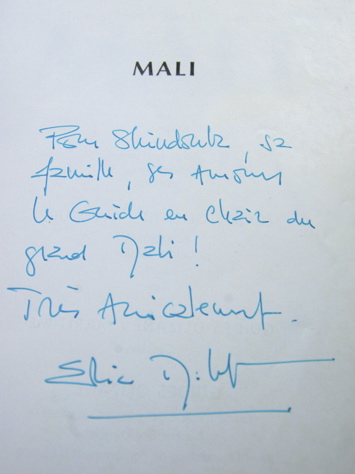 MALI
Pour , sa
famille, ses Amours
le Guide en Chair du
grand Mali !
Très Amicalement.
Eric